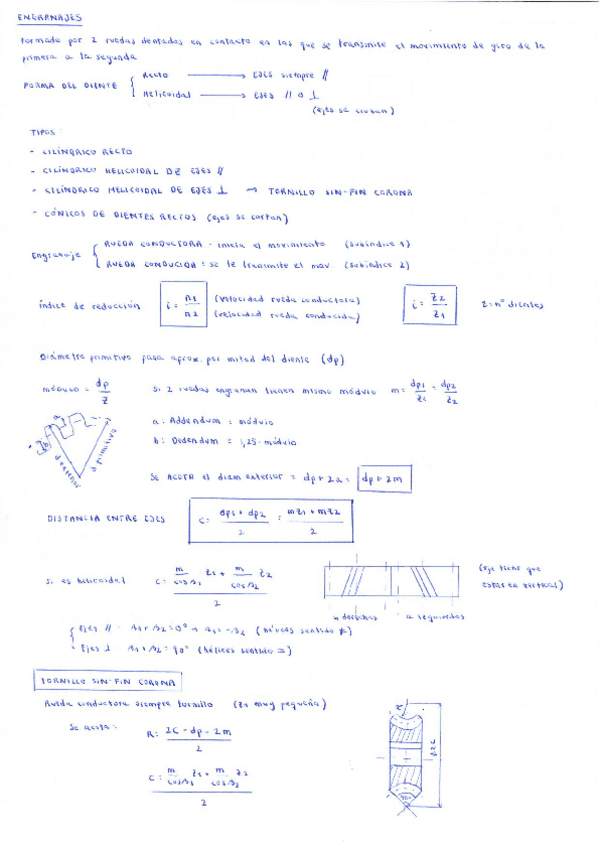 ENGRANAJES
Formado por 2 ruedas dentadas en contacto en las que se transmite el movimiento de giro de la
primera a la segunda
FORMA DEL DIENTE { Recto → EJES siempre //
Helicoidal → EJES // o ⊥
(ejes se cruzan)
TIPOS:
- CILÍNDRICO RECTO
- CILÍNDRICO HELICOIDAL DE EJES //
- CILÍNDRICO HELICOIDAL DE EJES ⊥ → TORNILLO SIN-FIN CORONA
- CÓNICOS DE DIENTES RECTOS (ejes se cortan)
Engranaje { RUEDA CONDUCTORA - inicia el movimiento (subíndice 1)
RUEDA CONDUCIDA: se le transmite el mov (subíndice 2)
índice de reducción i = n1/n2 (velocidad rueda conductora) (velocidad rueda conducida) i = Z2/Z1 Z = nº dientes
Diámetro primitivo pasa aprox. por mitad del diente (dp)
módulo = dp/Z Si 2 ruedas engranan tienen mismo módulo m = dp1/Z1 = dp2/Z2
a: Addendum = módulo
b: Dedendum = 1,25·módulo
d exterior
d primitivo
Se acota el diam exterior = dp + 2a = dp + 2m
DISTANCIA ENTRE EJES C = (dp1 + dp2)/2 = (mZ1 + mZ2)/2
Si es helicoidal C = (m/cosβ1 Z1 + m/cosβ2 Z2)/2
(eje tiene que
estar en vertical)
a derechas a izquierdas
{ Ejes // - β1+β2=0° → β1=-β2 (hélices sentido ≠)
Ejes ⊥ - β1+β2=90° (hélices sentido =)
TORNILLO SIN-FIN CORONA
Rueda conductora siempre tornillo (Z1 muy pequeña)
Se acota: R = (2C - dp - 2m)/2
C = (m/cosβ1 Z1 + m/cosβ2 Z2)/2
R